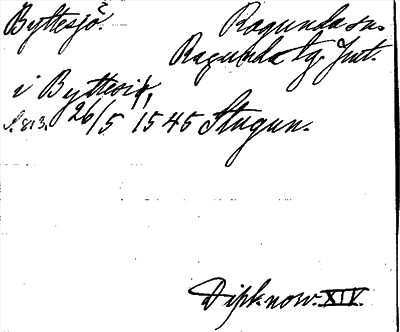 Byttesjö. Ragunda sn.
Ragunda tg. Jmt.
i Byttesiö,
S. 813. 26/5 1545 Stugun.
Dipl. norv. XIV.